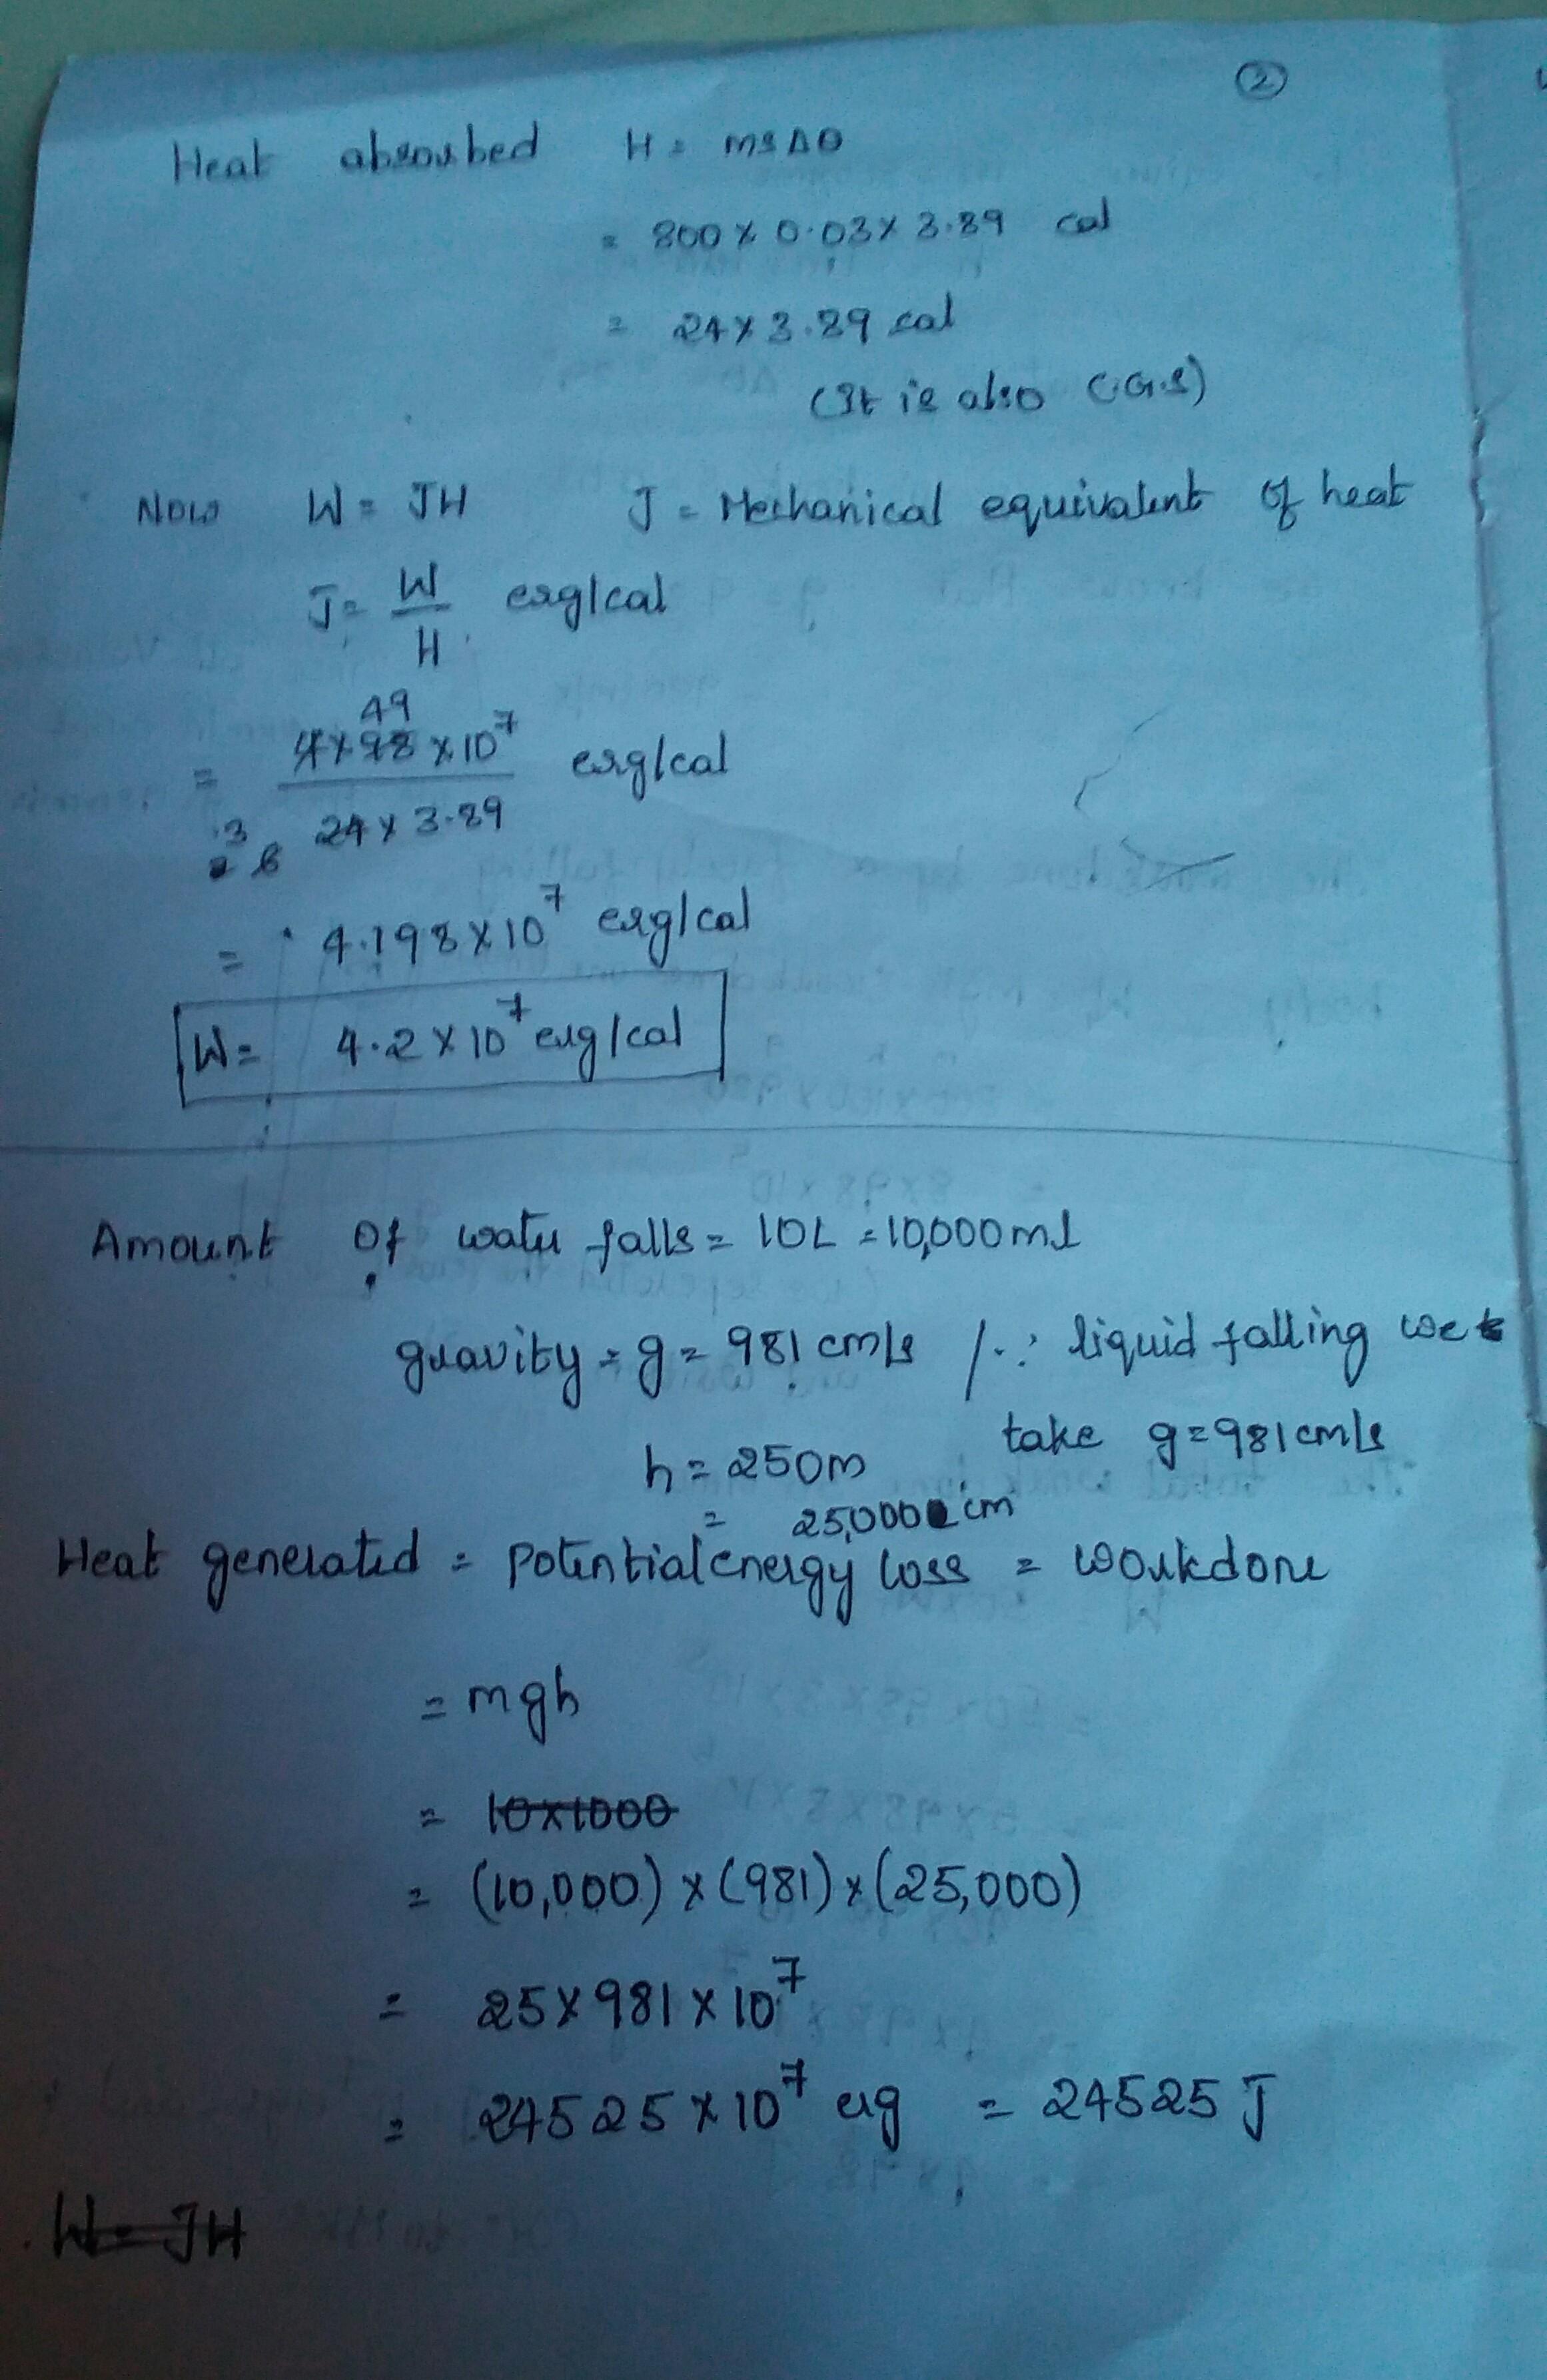 ②
Heat absorbed H = msΔθ
= 800 x 0.03 x 3.89 cal
= 24 x 3.89 cal
(It is also C.G.S)
Now W = JH J = Mechanical equivalent of heat
J = W/H erg/cal
49
= 4 x 98 x 10^7 / 24 x 3.89 erg/cal
3 6
= 4.198 x 10^7 erg/cal
W = 4.2 x 10^7 erg/cal
Amount of water falls = 10L = 10,000ml
gravity = g = 981 cm/s / ∵ liquid falling we
take g = 981 cm/s
h = 250m
= 25,000 cm
Heat generated = Potential energy loss = workdone
= mgh
= 10x1000
= (10,000) x (981) x (25,000)
= 25 x 981 x 10^7
= 24525 x 10^7 erg = 24525 J
W = JH